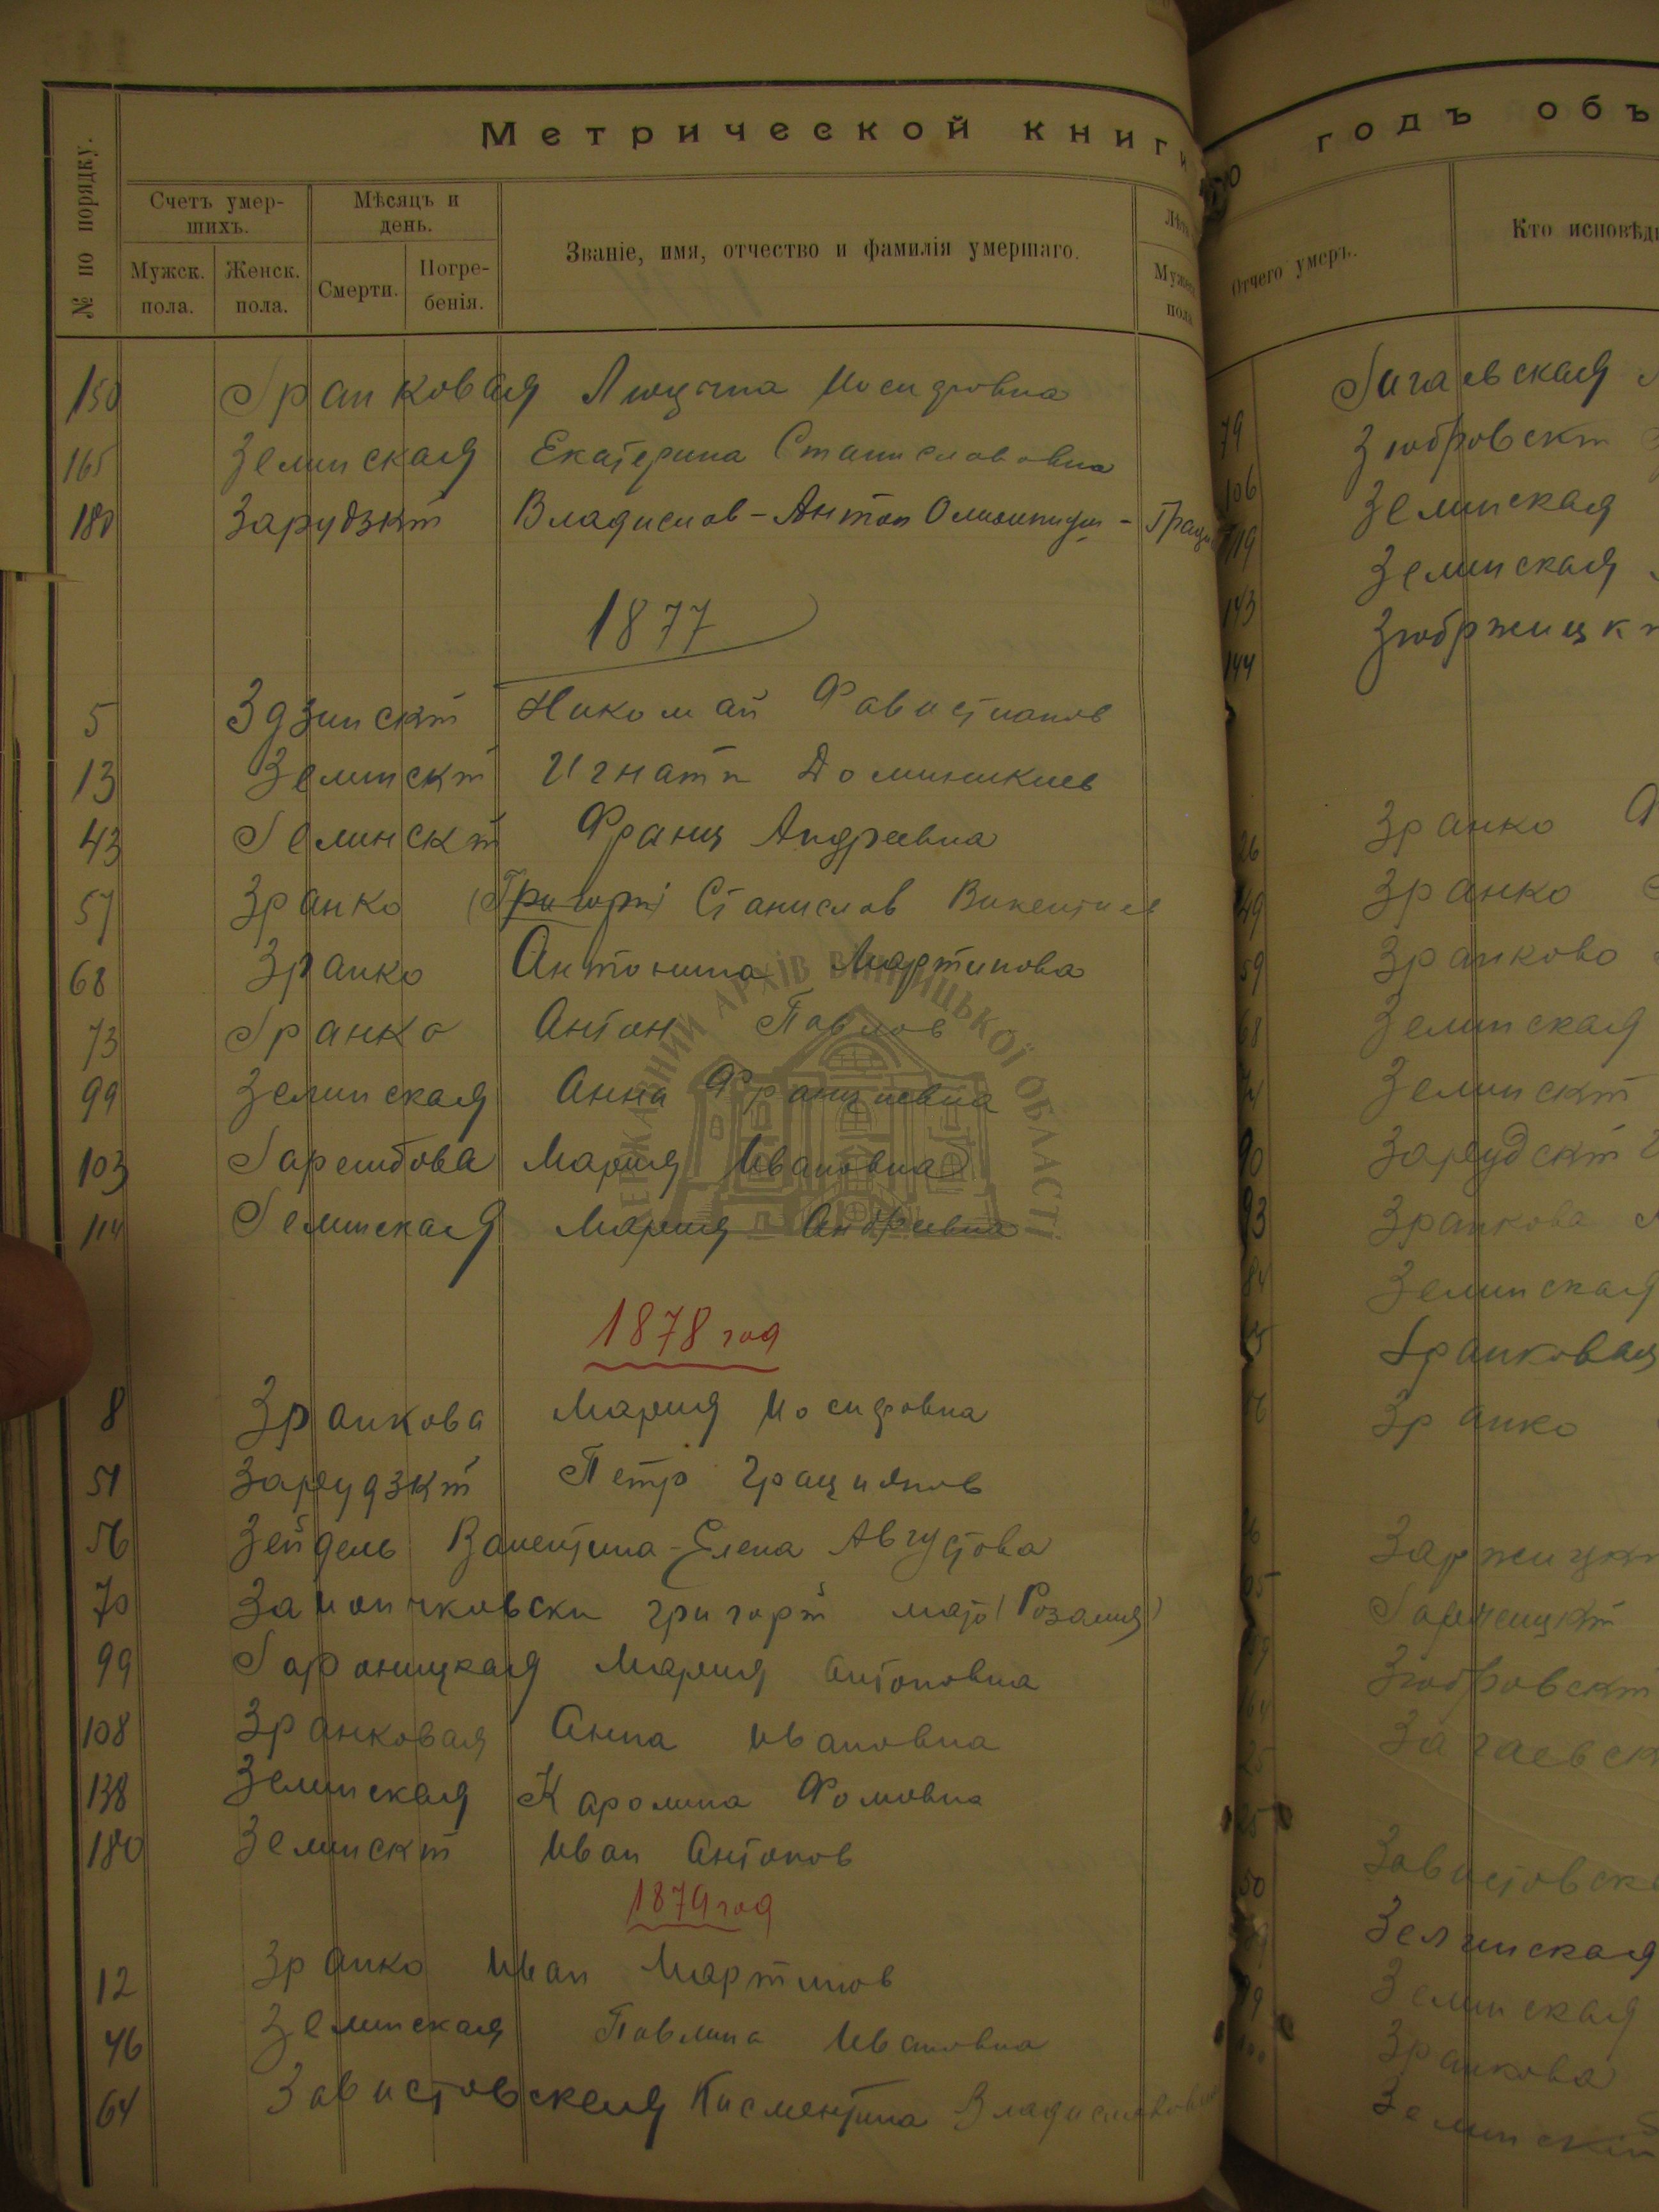 Метрической книги
годъ объ
№ по порядку.
Счетъ умер-
шихъ.
Мѣсяцъ и
день.
Званіе, имя, отчество и фамилія умершаго.
Мужск.
пола.
Женск.
пола.
Смерти.
Погре-
бенія.
Отчего умеръ.
Кто исповѣд
150 Зранковая Люцина Иосифовна
165 Зелинская Екатерина Станиславовна
180 Зарудзкій Владислав-Антон
1877
5 Здзинскій Николай
13 Зелинскій Игнатій Доминикиев
43 Зелинскій Франц Андреевна
57 Зранко (Григорій) Станислав Викентиев
68 Зранко Антонина Мартинова
73 Зранко Антон Павлов
99 Зелинская Анна Францiевна
103 Мария Ивановна
114 Зелинская Мария Андреевна
1878 год
8 Зранкова Мария Иосифовна
51 Зарудзкій Петр Грациянов
56 Зейдель Валентина-Елена Августова
70 Григорій мать (Розалия)
99 Мария Антоновна
108 Зранковая Анна Ивановна
138 Зелинская Каролина Фомовна
180 Зелинскій Иван Антонов
1879 год
12 Зранко Иван Мартинов
46 Зелинская Павлина Ивановна
64 Завистовская Клементина
79 Загаевская
106 Зюбровскій
119 Зелинская
143 Зелинская
144 Зюбржицк
26 Зранко
49 Зранко
59 Зранково
68 Зелинская
Зелинскій
90 Зарудскій
93 Зранкова
84 Зелинская
Зранковая
Зранко
Заржицк
Зюбровскій
Загаевск
Завистовск
50 Зелинская
Зелинская
Зранкова
Зелинский
ДЕРЖАВНИЙ АРХІВ ВІННИЦЬКОЇ ОБЛАСТІ